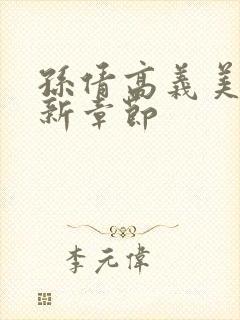 孫倩高義美
新章節
李元偉